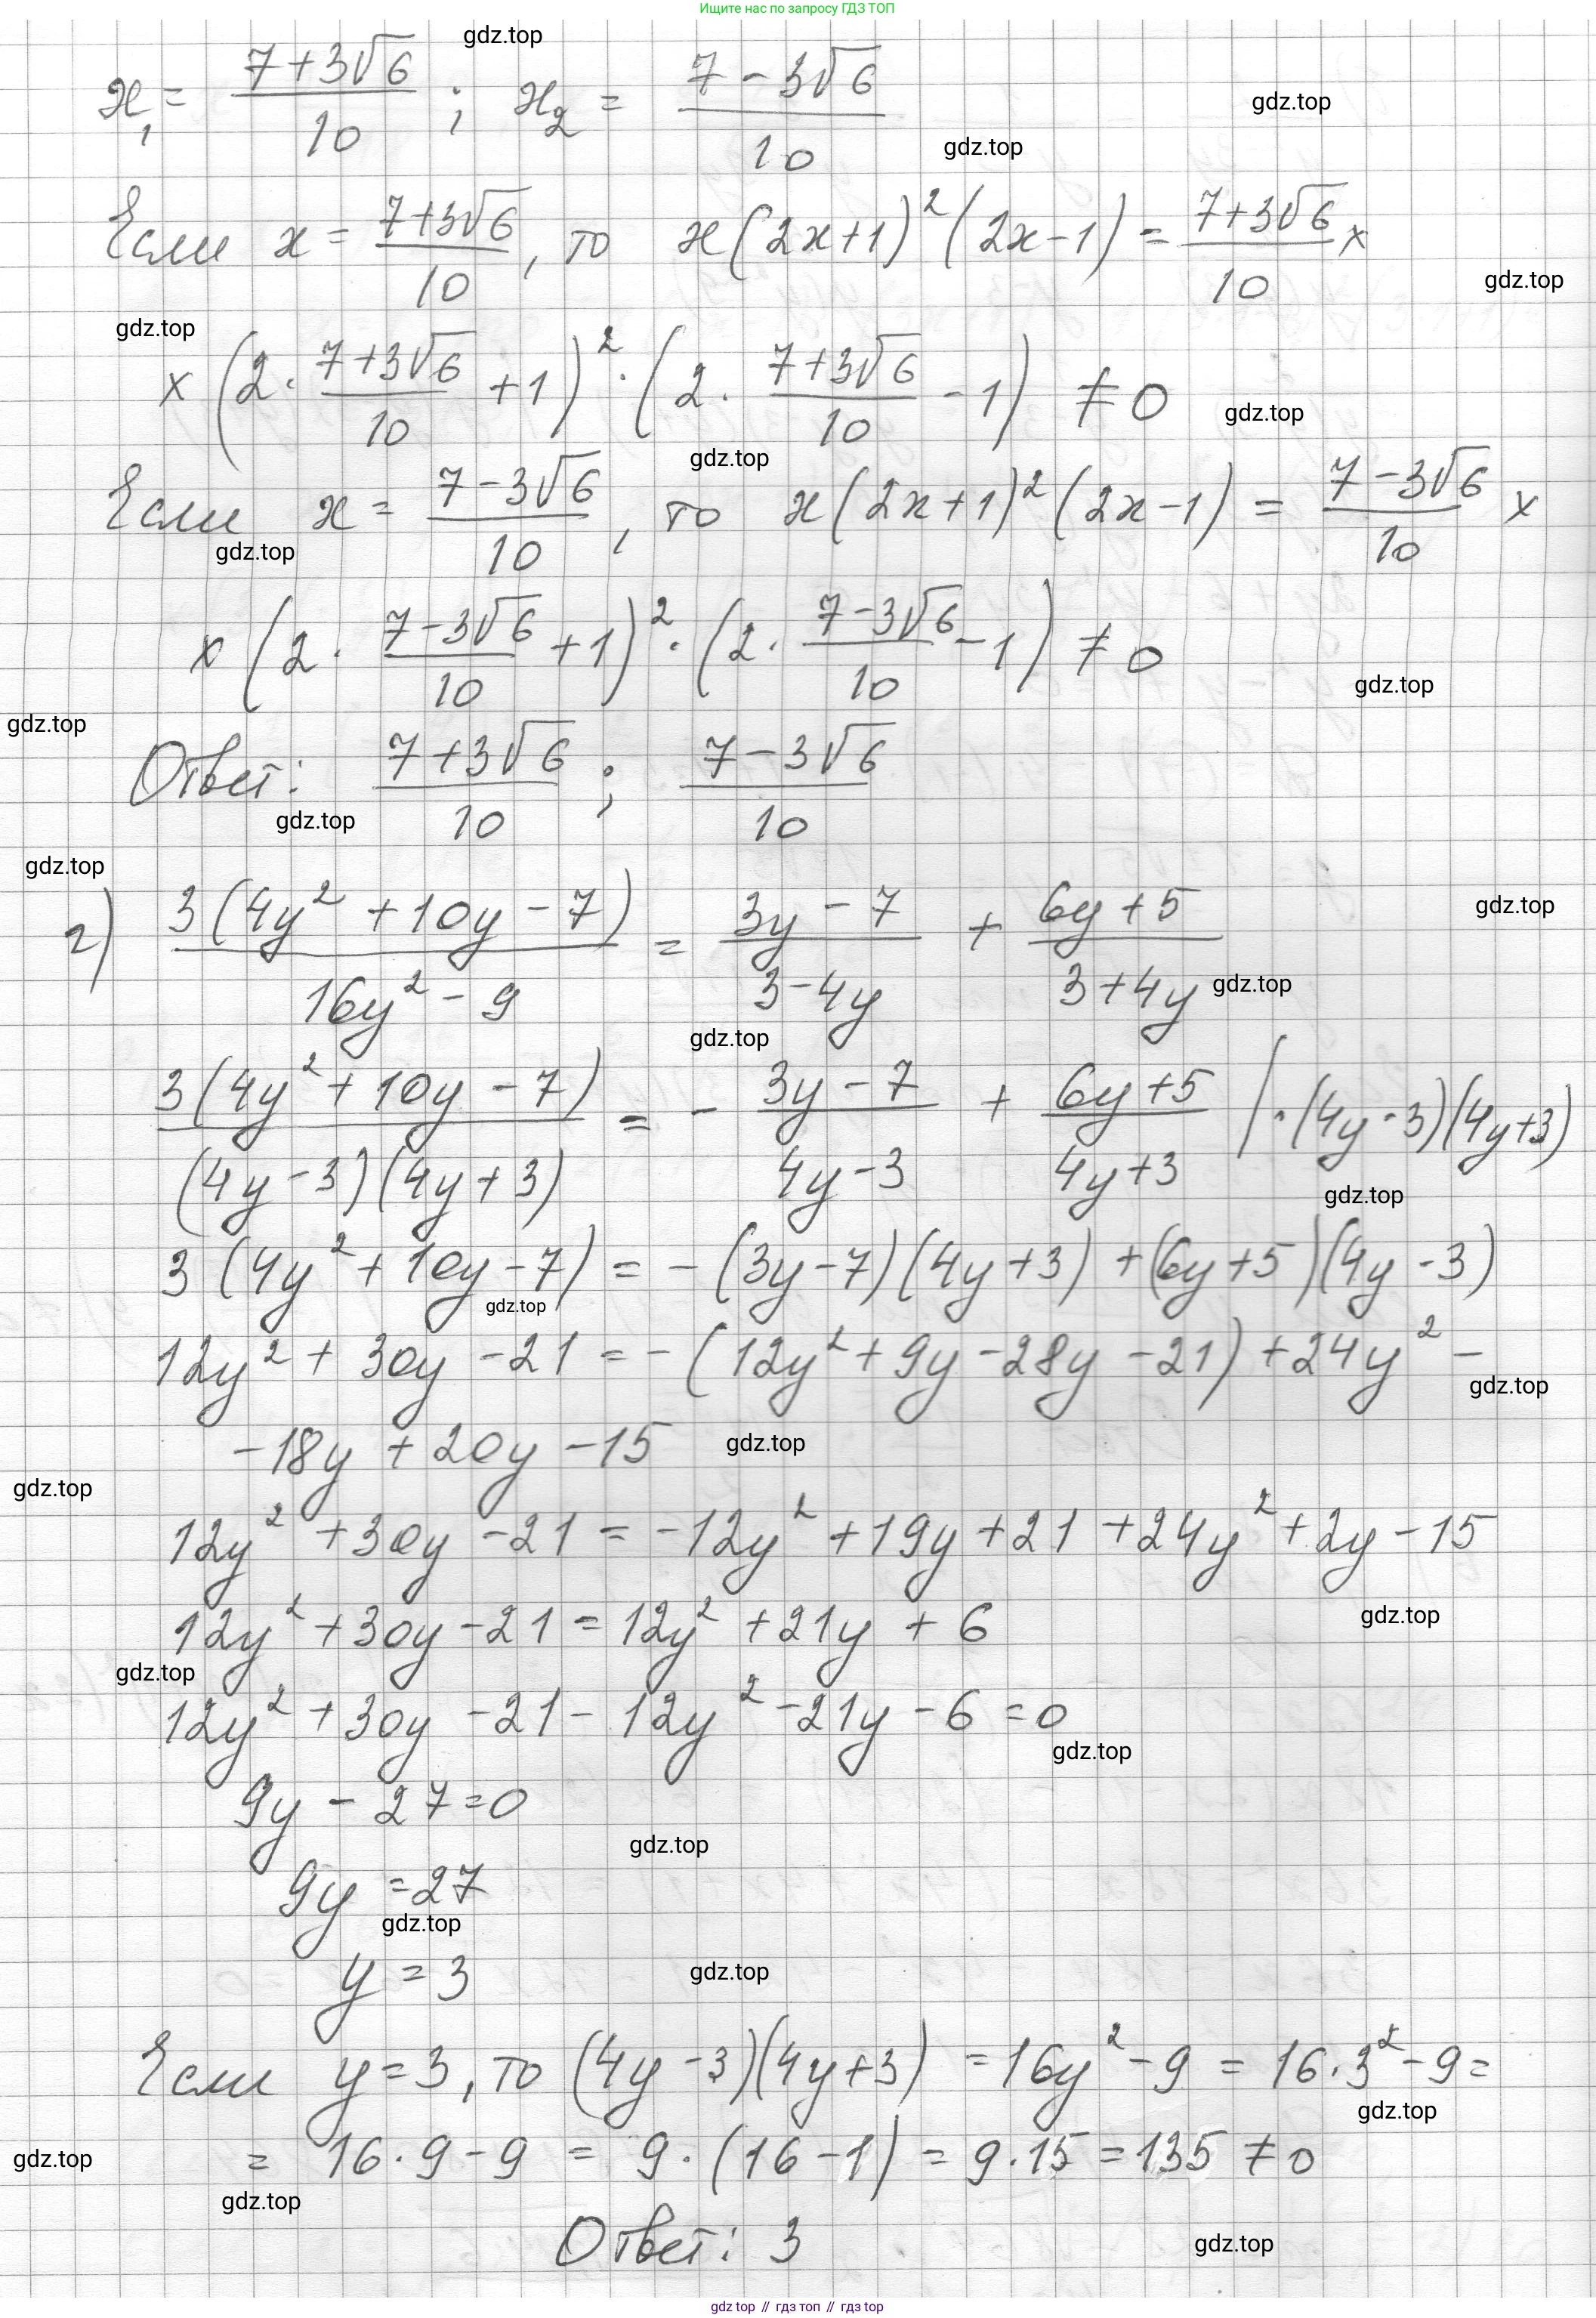 Ищите нас по запросу ГДЗ ТОП
gdz.top
x₁ = (7+3√6)/10 ; x₂ = (7-3√6)/10
gdz.top
gdz.top
Если x = (7+3√6)/10, то x(2x+1)²(2x-1) = (7+3√6)/10 ×
gdz.top
gdz.top
× (2·(7+3√6)/10 + 1)² · (2·(7+3√6)/10 - 1) ≠ 0
gdz.top
gdz.top
Если x = (7-3√6)/10, то x(2x+1)²(2x-1) = (7-3√6)/10 ×
gdz.top
× (2·(7-3√6)/10 + 1)² · (2·(7-3√6)/10 - 1) ≠ 0
gdz.top
gdz.top
Ответ: (7+3√6)/10 ; (7-3√6)/10
gdz.top
gdz.top
г) 3(4y²+10y-7)/(16y²-9) = (3y-7)/(3-4y) + (6y+5)/(3+4y)
gdz.top
gdz.top
gdz.top
3(4y²+10y-7)/((4y-3)(4y+3)) = - (3y-7)/(4y-3) + (6y+5)/(4y+3) | ·(4y-3)(4y+3)
gdz.top
3(4y²+10y-7) = -(3y-7)(4y+3)+(6y+5)(4y-3)
gdz.top
12y²+30y-21 = -(12y²+9y-28y-21)+24y²-
gdz.top
-18y+20y-15
gdz.top
gdz.top
12y²+30y-21 = -12y²+19y+21+24y²+2y-15
12y²+30y-21 = 12y²+21y+6
gdz.top
gdz.top
12y²+30y-21-12y²-21y-6=0
gdz.top
9y-27=0
gdz.top
9y=27
gdz.top
y=3
gdz.top
Если y=3, то (4y-3)(4y+3) = 16y²-9 = 16·3²-9=
gdz.top
= 16·9-9 = 9·(16-1) = 9·15 = 135 ≠ 0
gdz.top
gdz.top
Ответ: 3
gdz.top
gdz top // гдз топ // гдз top